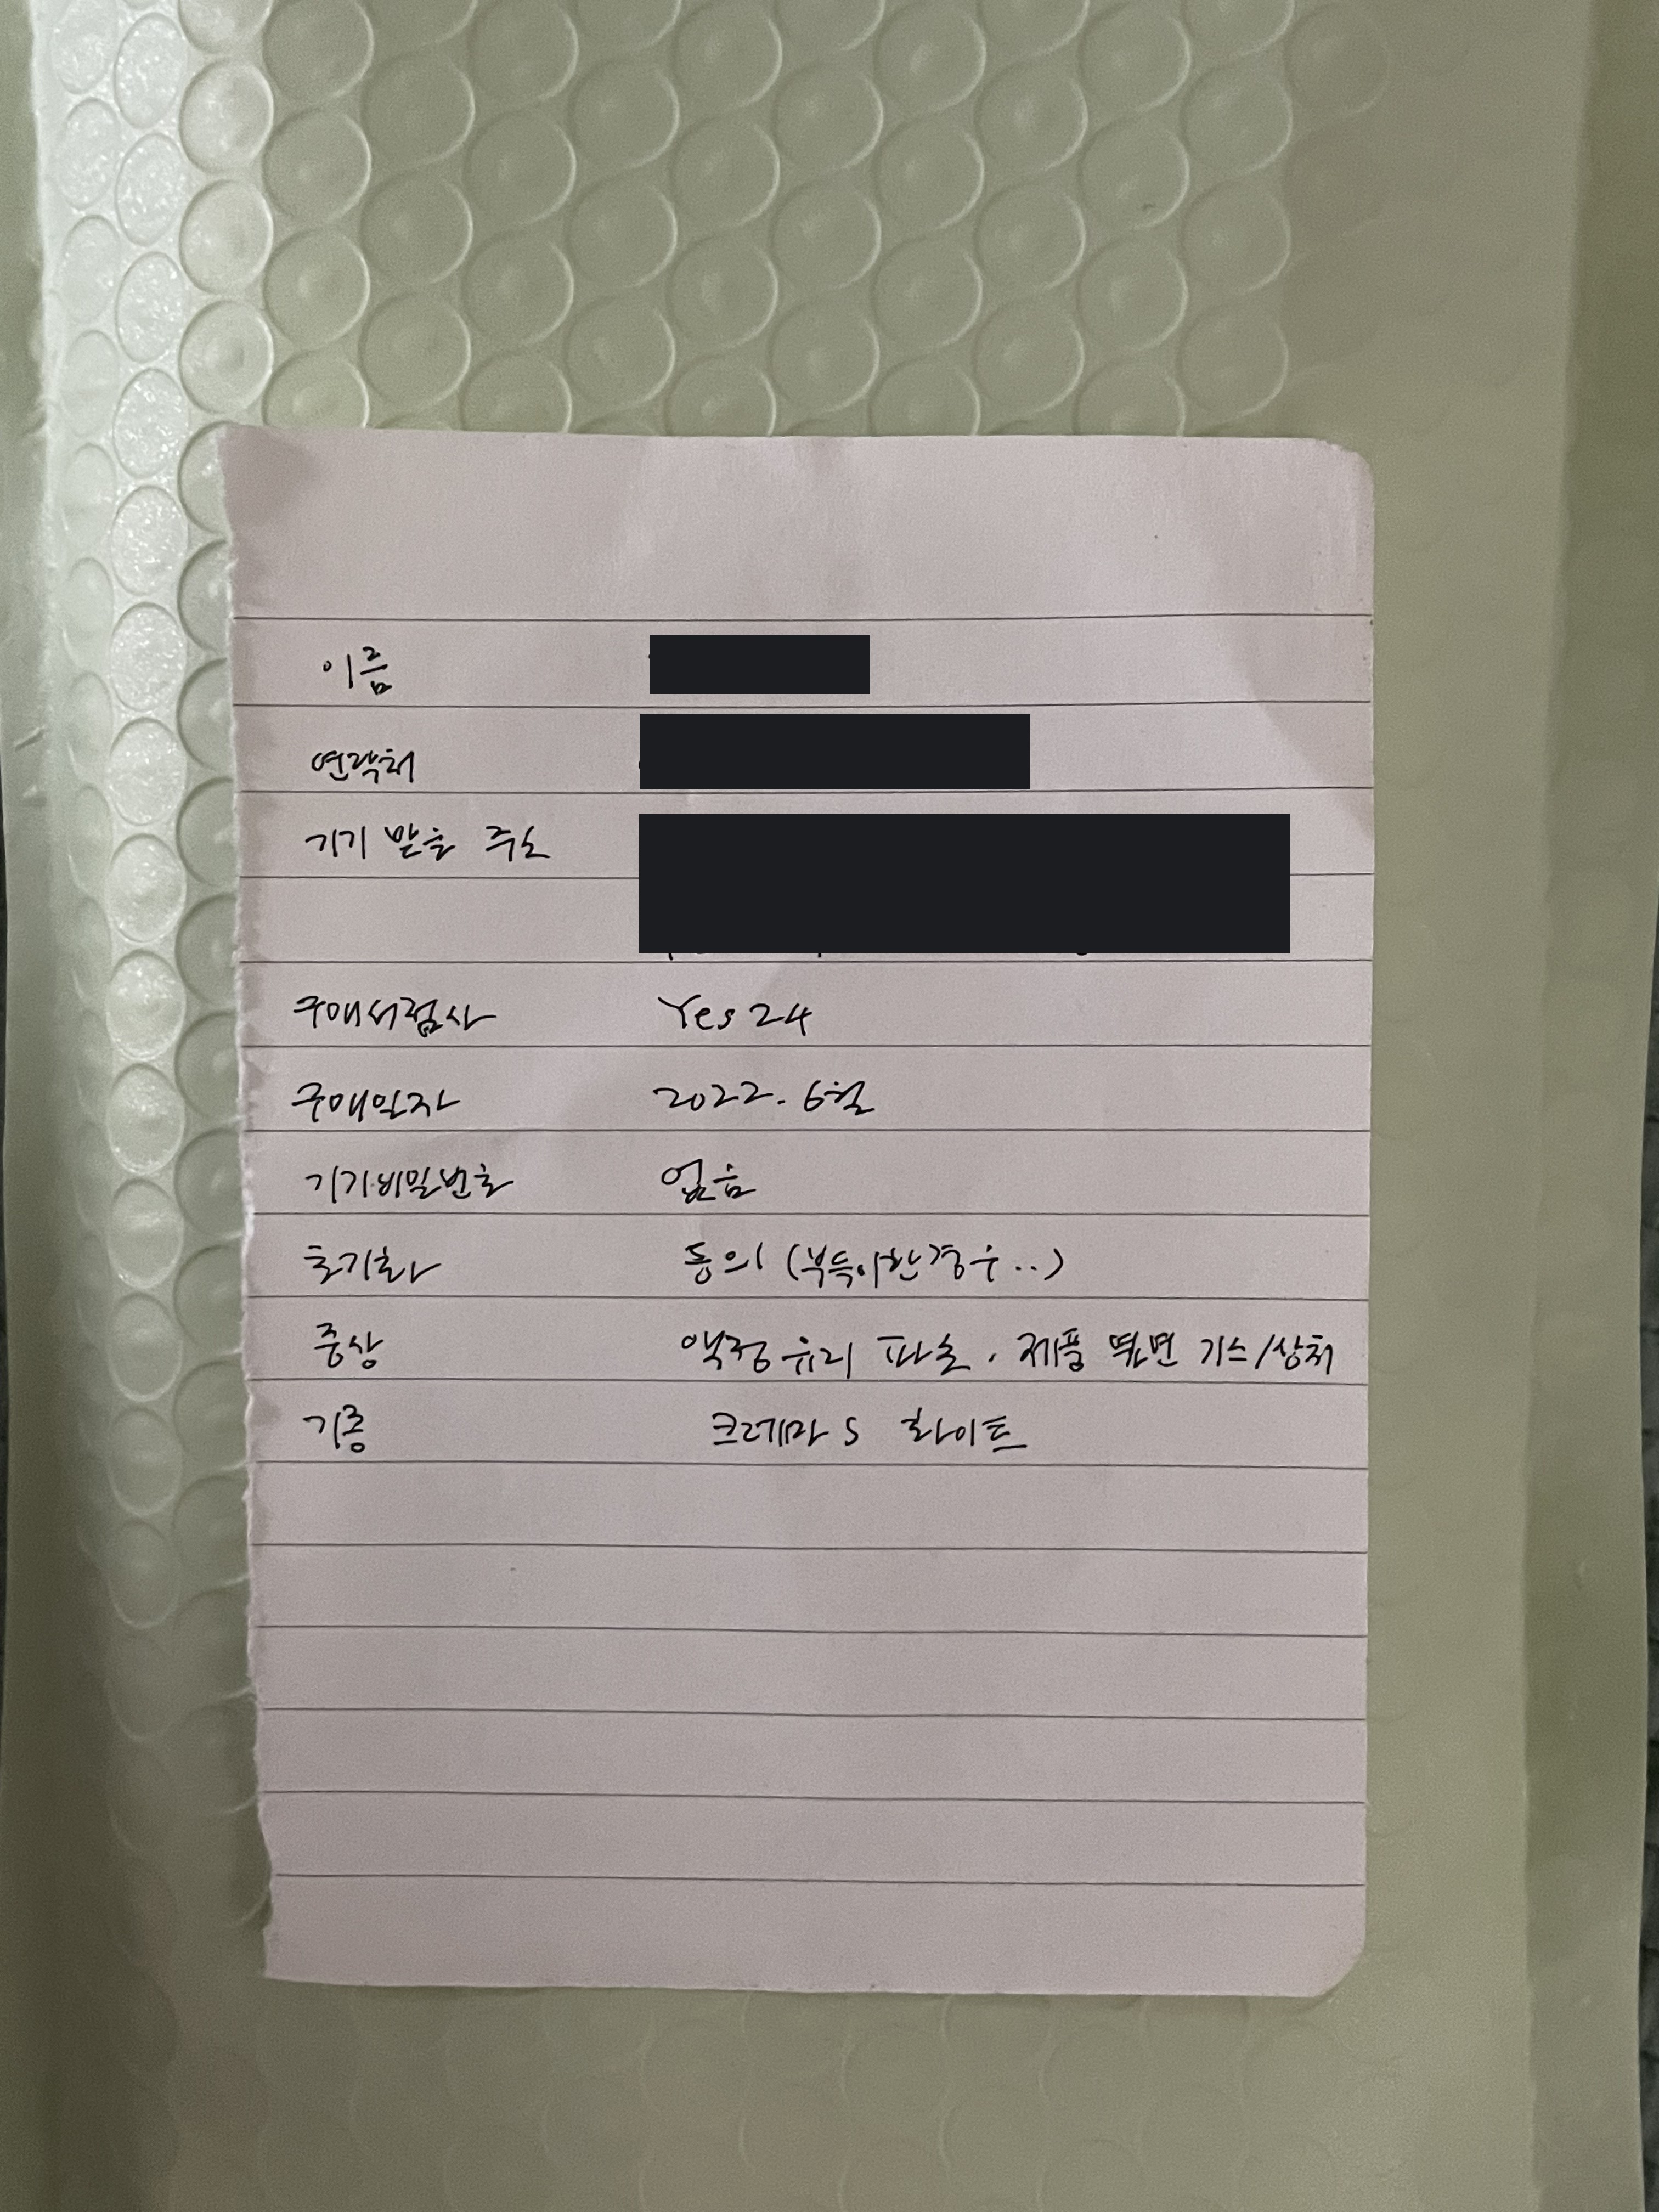 이름
연락처
기기 받을 주소
구매서점사 Yes24
구매일자 2022. 6월
기기비밀번호 없음
초기화 동의 (부득이한경우..)
증상 액정 유리 파손. 제품 뒷면 기스/상처
기종 크레마 S 화이트